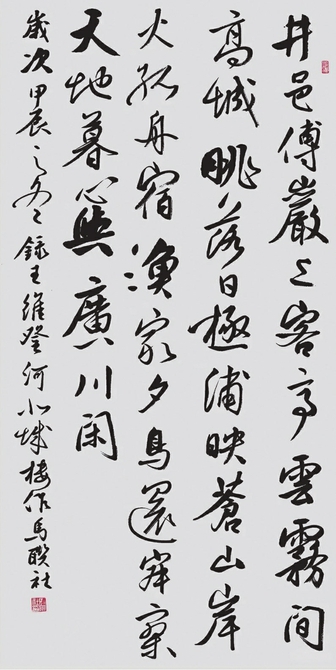 井邑傅巖上客亭雲霧間
高城眺落日極浦映蒼山岸
火孤舟宿漁家夕鳥還寂寥
天地暮心與廣川閑
歲次甲辰之冬錄王維登河北城樓作馬聯社